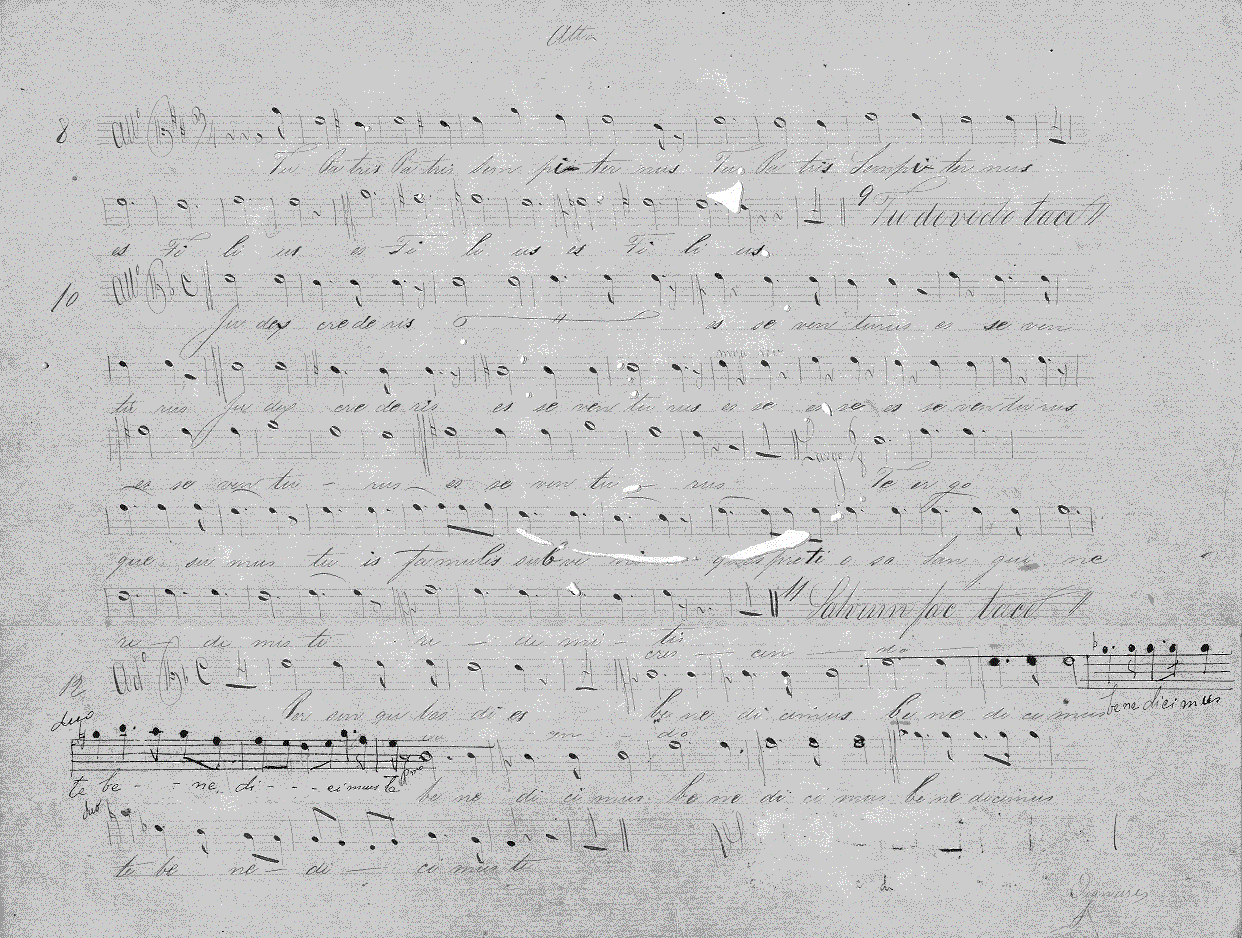 Alto
8 All.o 3/4
Tu Patris Patris sem pi ter nus Tu Pa tris Sempi ter nus
9 Tu devicto tacet
es Fi li us es Fi li us es Fi li us
10 All.o C
Ju dex crede ris es se ven turus es se ven
tu rus Ju dex cre de ris es se ven tu rus es se es se es se venturus
Largo
es se ven tu - rus es se ven tu - rus Te er go
que su mus tu is famulis subve quos preti o sa San gui ne
11 Salvum fac tacet
re - de mis te re - de mi - tis
cres - cen - do
12 Ad.o C
Per sin gu los di es be ne di cimus be ne di ci mus benedicimus
duo
te be - - ne. di - - - cimus te
be ne di ci mus be ne di ci mus bene dicimus
duo
te be ne - di - ci mus te